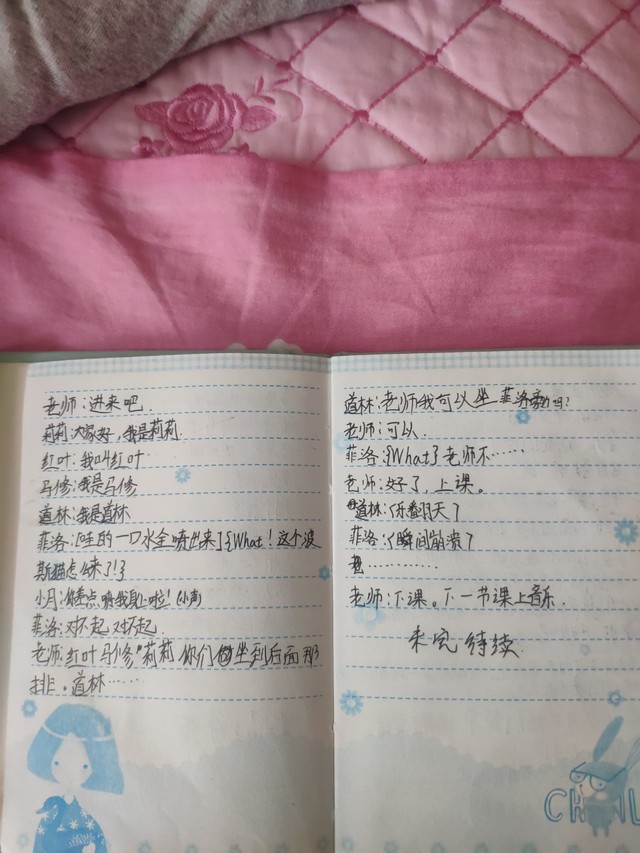 老师:进来吧
莉莉:大家好,我是莉莉.
红叶:我叫红叶
马修:我是马修
道林:我是道林
菲洛:[哇的一口水全喷出来]{What!这个波
斯猫怎么来了!}
小月:你差点喷我身上啦!(小声)
菲洛:对不起对不起
老师:红叶马修"莉莉你们坐到后面那
排。道林……
道林:老师我可以坐菲洛旁边吗?
老师:可以.
菲洛:{What}老师不……
老师:好了,上课。
道林:(乐翻天了
菲洛:(瞬间崩溃了
…………
老师:下课。下一节课上音乐.
未完待续
CH